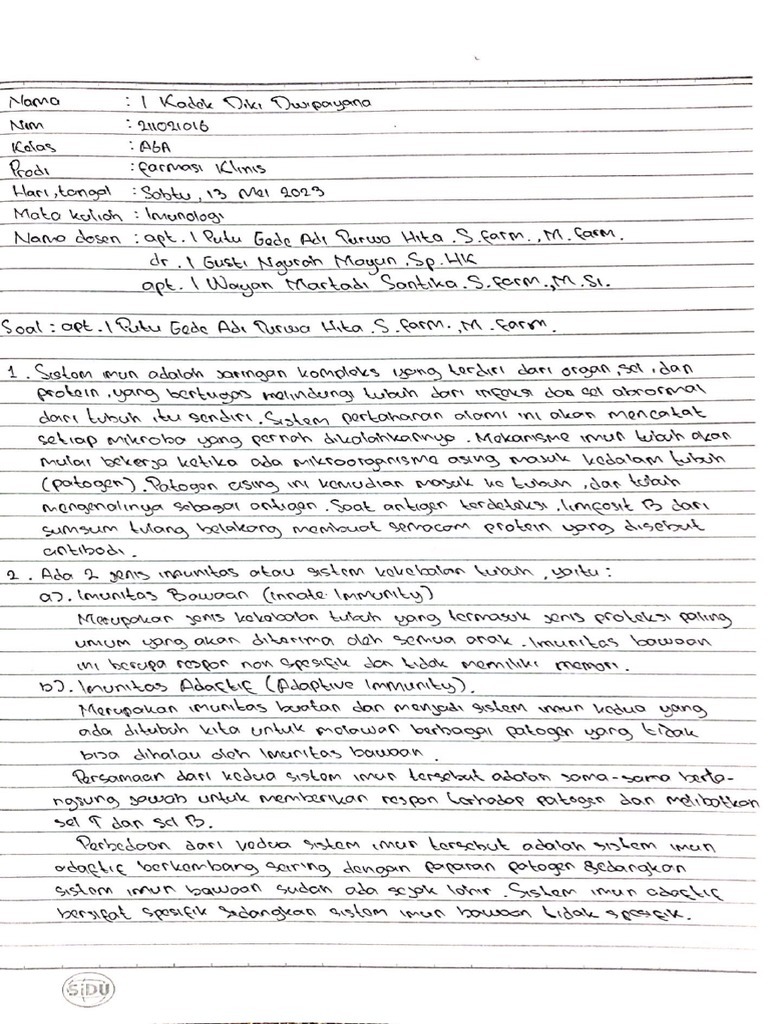 Nama : I Kadek Diki Dwipayana
Nim : 211021016
Kelas : A6A
Prodi : Farmasi Klinis
Hari, tanggal : Sabtu, 13 Mei 2023
Mata kuliah : Imunologi
Nama dosen : apt. I Putu Gede Adi Purwa Hita. S.Farm., M.Farm.
dr. I Gusti Ngurah Mayun. Sp.HK
apt. I Wayan Martadi Santika. S.Farm., M.Si.
Soal : apt. I Putu Gede Adi Purwa Hita. S.Farm., M.Farm.
1. Sistem imun adalah jaringan kompleks yang terdiri dari organ, sel, dan
protein, yang bertugas melindungi tubuh dari infeksi dan sel abnormal
dari tubuh itu sendiri. Sistem pertahanan alami ini akan mencatat
setiap mikroba yang pernah dikalahkannya. Mekanisme imun tubuh akan
mulai bekerja ketika ada mikroorganisme asing masuk kedalam tubuh
(patogen). Patogen asing ini kemudian masuk ke tubuh, dan tubuh
mengenalinya sebagai antigen. Saat antigen terdeteksi, limfosit B dari
sumsum tulang belakang membuat semacam protein yang disebut
antibodi.
2. Ada 2 jenis imunitas atau sistem kekebalan tubuh, yaitu :
a). Imunitas Bawaan (Innate Immunity)
Merupakan jenis kekebalan tubuh yang termasuk jenis proteksi paling
umum yang akan diterima oleh semua anak. Imunitas bawaan
ini berupa respon non spesifik dan tidak memiliki memori.
b). Imunitas Adaftif (Adaptive Immunity).
Merupakan imunitas buatan dan menjadi sistem imun kedua yang
ada ditubuh kita untuk melawan berbagai patogen yang tidak
bisa dihalau oleh Imunitas bawaan.
Persamaan dari kedua sistem imun tersebut adalah sama-sama berta-
ngsung jawab untuk memberikan respon terhadap patogen dan melibatkan
sel T dan sel B.
Perbedaan dari kedua sistem imun tersebut adalah sistem imun
adaftif berkembang seiring dengan paparan patogen sedangkan
sistem imun bawaan sudah ada sejak lahir. Sistem imun adaftif
bersifat spesifik sedangkan sistem imun bawaan tidak spesifik.
SiDU